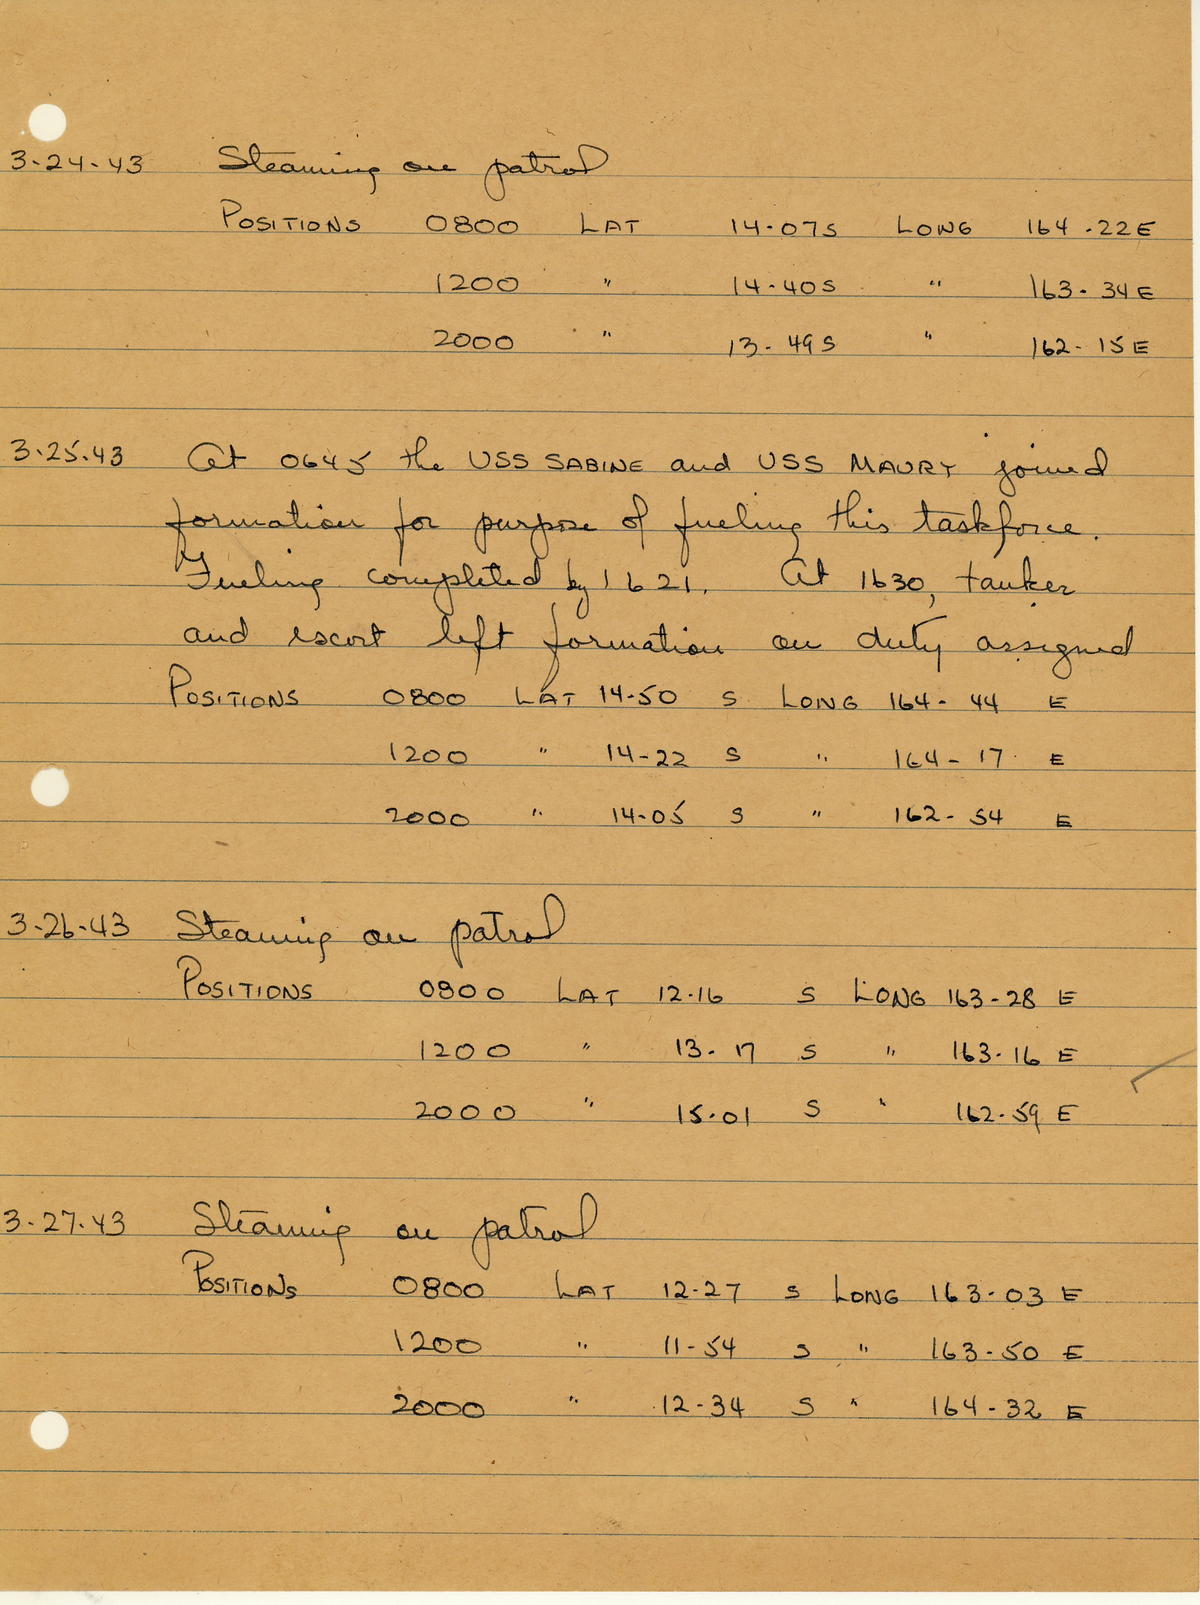 3-24-43 Steaming on patrol
POSITIONS 0800 LAT 14-07S LONG 164-22E
1200 " 14-40S " 163-34E
2000 " 13-49S " 162-15E
3-25-43 At 0645 the USS SABINE and USS MAURY joined
formation for purpose of fueling this taskforce.
Fueling completed by 1621. At 1630, tanker
and escort left formation on duty assigned
POSITIONS 0800 LAT 14-50 S LONG 164-44 E
1200 " 14-22 S " 164-17 E
2000 " 14-05 S " 162-54 E
3-26-43 Steaming on patrol
POSITIONS 0800 LAT 12-16 S LONG 163-28 E
1200 " 13-17 S " 163-16 E
2000 " 15-01 S " 162-59 E
3-27-43 Steaming on patrol
POSITIONS 0800 LAT 12-27 S LONG 163-03 E
1200 " 11-54 S " 163-50 E
2000 " 12-34 S " 164-32 E